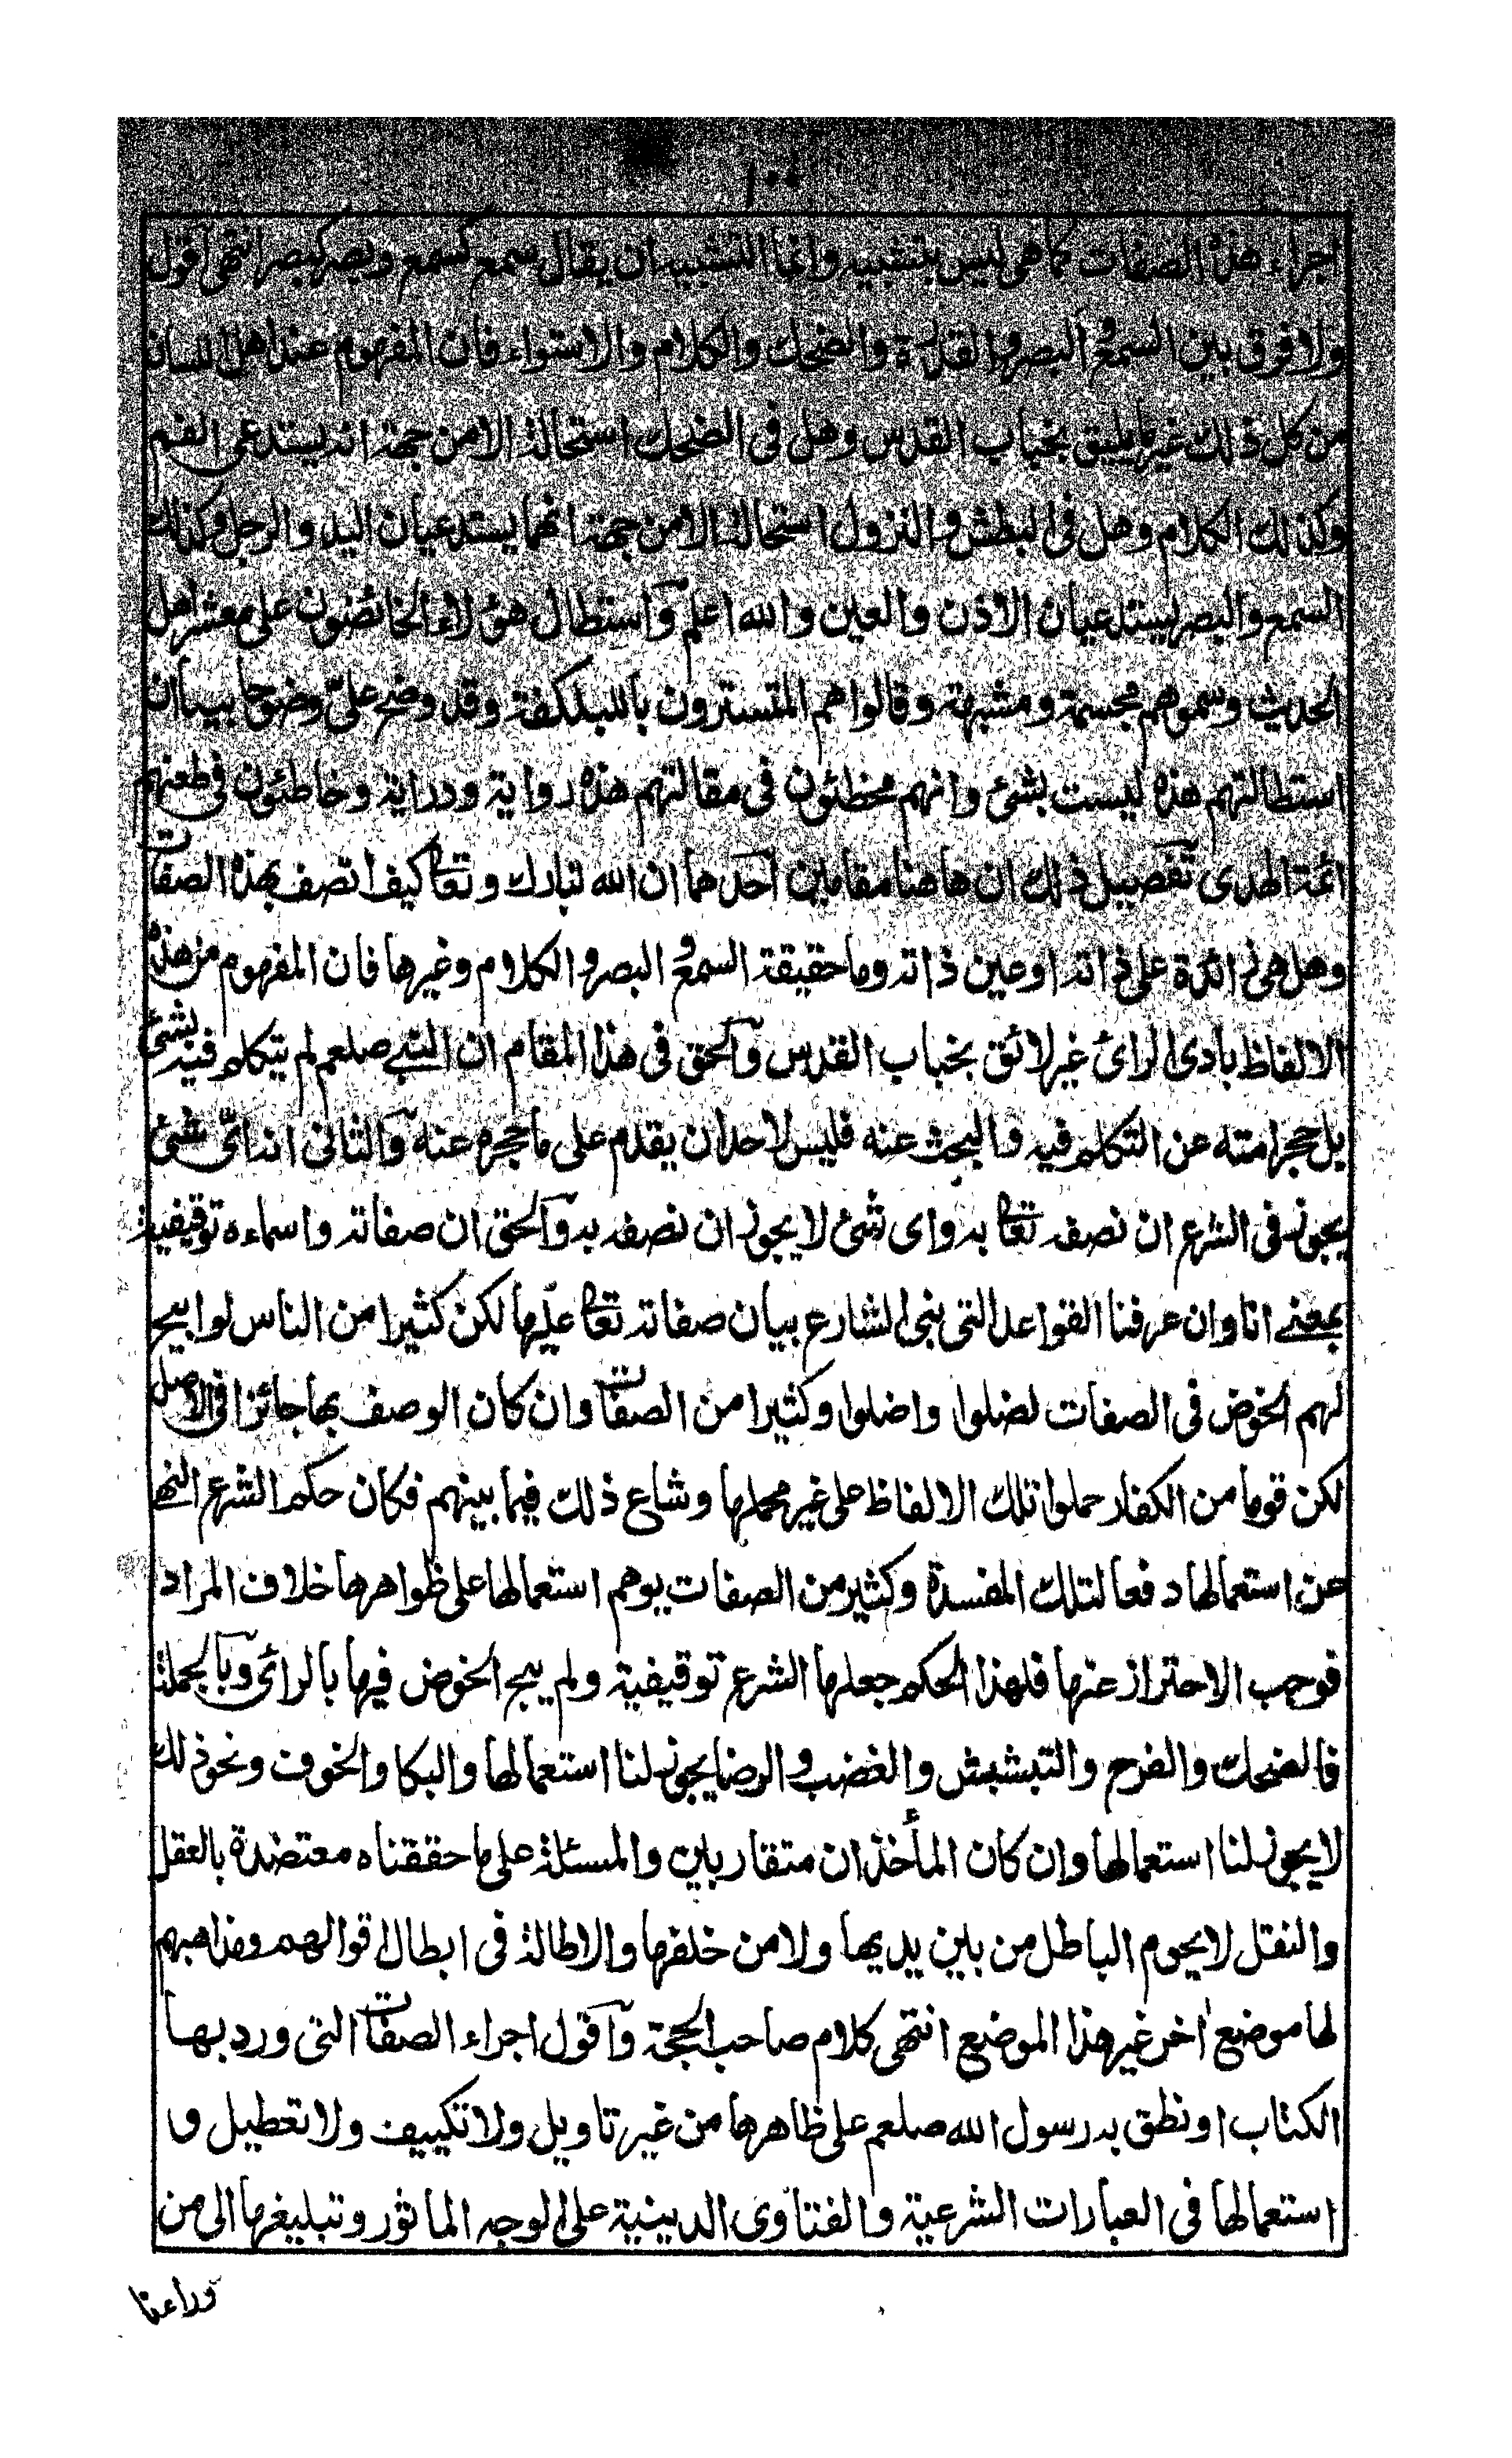 ١٠٠
اجراء هذه الصفات كما هى ليس بتشبيه وانما التشبيه ان يقال سمع كسمع وبصر كبصر انتهى اقول
ولا فرق بين السمع والبصر والقدرة والضحك والكلام والاستواء فان المفهوم عند اهل اللسان
من كل ذلك غير ما يليق بجناب القدس وهل فى الضحك استحالة الا من جهة انه يستدعى الفم
وكذلك الكلام وهل فى البطش والنزول استحالة الا من جهة انهما يستدعيان اليد والرجل وكذلك
السمع والبصر يستدعيان الاذن والعين والله اعلم واستطال هؤلاء الخائضون على معشر اهل
الحديث وسموهم مجسمة ومشبهة وقالوا هم المتسترون بالبلكفة وقد وضح علىّ وضوحا بينا ان
استطالتهم هذه ليست بشئ وانهم مخطئون فى مقالتهم هذه رواية ودراية وخاطئون فى طعنهم
ائمة الهدى تفصيل ذلك ان هاهنا مقامين احدهما ان الله تبارك وتعا كيف اتصف بهذه الصفات
وهل هى زائدة على ذاته او عين ذاته وما حقيقة السمع والبصر والكلام وغيرها فان المفهوم من هذه
الالفاظ بادى الرائ غير لائق بجناب القدس والحق فى هذا المقام ان النبى صلعم لم يتكلم فيه بشئ
بل حجر امته عن التكلم فيه والبحث عنه فليس لاحد ان يقدم على ما حجره عنه والثانى انه اىّ شئ
يجوز فى الشرع ان نصفه تعا به واى شئ لا يجوز ان نصفه به والحق ان صفاته واسماءه توقيفية
بمعنى انا وان عرفنا القواعد التى بنى الشارع بيان صفاته تعا عليها لكن كثيرا من الناس لو ابيح
لهم الخوض فى الصفات لضلوا واضلوا وكثيرا من الصفات وان كان الوصف بها جائزا فى الاصل
لكن قوما من الكفار حملوا تلك الالفاظ على غير محملها وشاع ذلك فيما بينهم فكان حكم الشرع النهى
عن استعمالها دفعا لتلك المفسدة وكثير من الصفات يوهم استعمالها على ظواهرها خلاف المراد
فوجب الاحتراز عنها فلهذا الحكم جعلها الشرع توقيفية ولم يبح الخوض فيها بالرائ وبالجملة
فالضحك والفرح والتبشبش والغضب والرضا يجوز لنا استعمالها والبكا والخوف ونحو ذلك
لا يجوز لنا استعمالها وان كان المأخذان متقاربين والمسئلة على ما حققناه معتضدة بالعقل
والنقل لا يحوم الباطل من بين يديها ولا من خلفها والاطالة فى ابطال اقوالهم ومذاهبهم
لها موضع اخر غير هذا الموضع انتهى كلام صاحب الحجة واقول اجراء الصفات التى ورد بها
الكتاب او نطق به رسول الله صلعم على ظاهرها من غير تاويل ولا تكييف ولا تعطيل و
استعمالها فى العبارات الشرعية والفتاوى الدينية على الوجه الماثور وتبليغها الى من